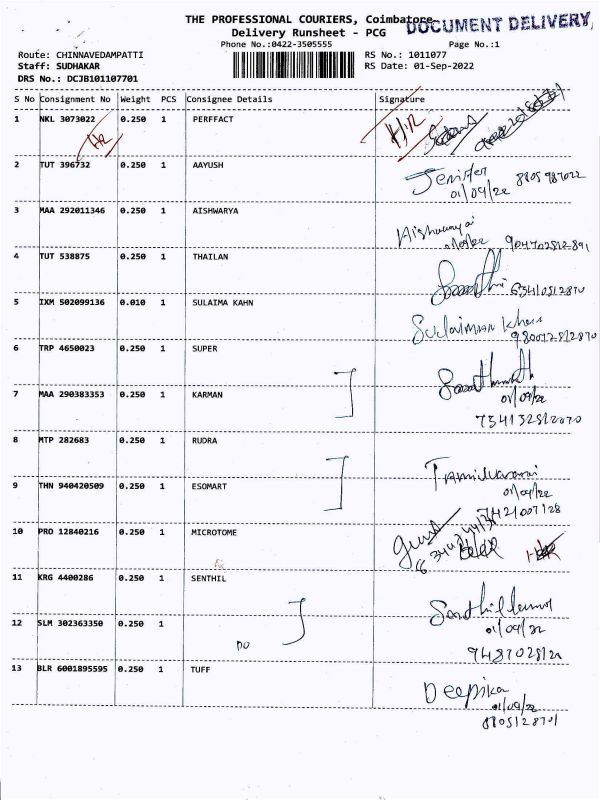 THE PROFESSIONAL COURIERS, Coimbatore
DOCUMENT DELIVERY,
Delivery Runsheet - PCG
Phone No.:0422-3505555 Page No.:1
Route: CHINNAVEDAMPATTI RS No.: 1011077
Staff: SUDHAKAR RS Date: 01-Sep-2022
DRS No.: DCJB101107701
S No Consignment No Weight PCS Consignee Details Signature
1 NKL 3073022 0.250 1 PERFFACT
2 TUT 396732 0.250 1 AAYUSH Jenifer
01/09/22
3 MAA 292011346 0.250 1 AISHWARYA Aishwarya
4 TUT 538875 0.250 1 THAILAN
5 IXM 502099136 0.010 1 SULAIMA KAHN Sulaiman Khan
6 TRP 4650023 0.250 1 SUPER
7 MAA 290383353 0.250 1 KARMAN 01/09/22
8 MTP 282683 0.250 1 RUDRA
9 THN 940420509 0.250 1 ESOMART 01/09/22
7421007128
10 PRO 12840216 0.250 1 MICROTOME
11 KRG 4400286 0.250 1 SENTHIL
12 SLM 302363350 0.250 1 01/09/22
DO
13 BLR 6001895595 0.250 1 TUFF Deepika
01/09/22